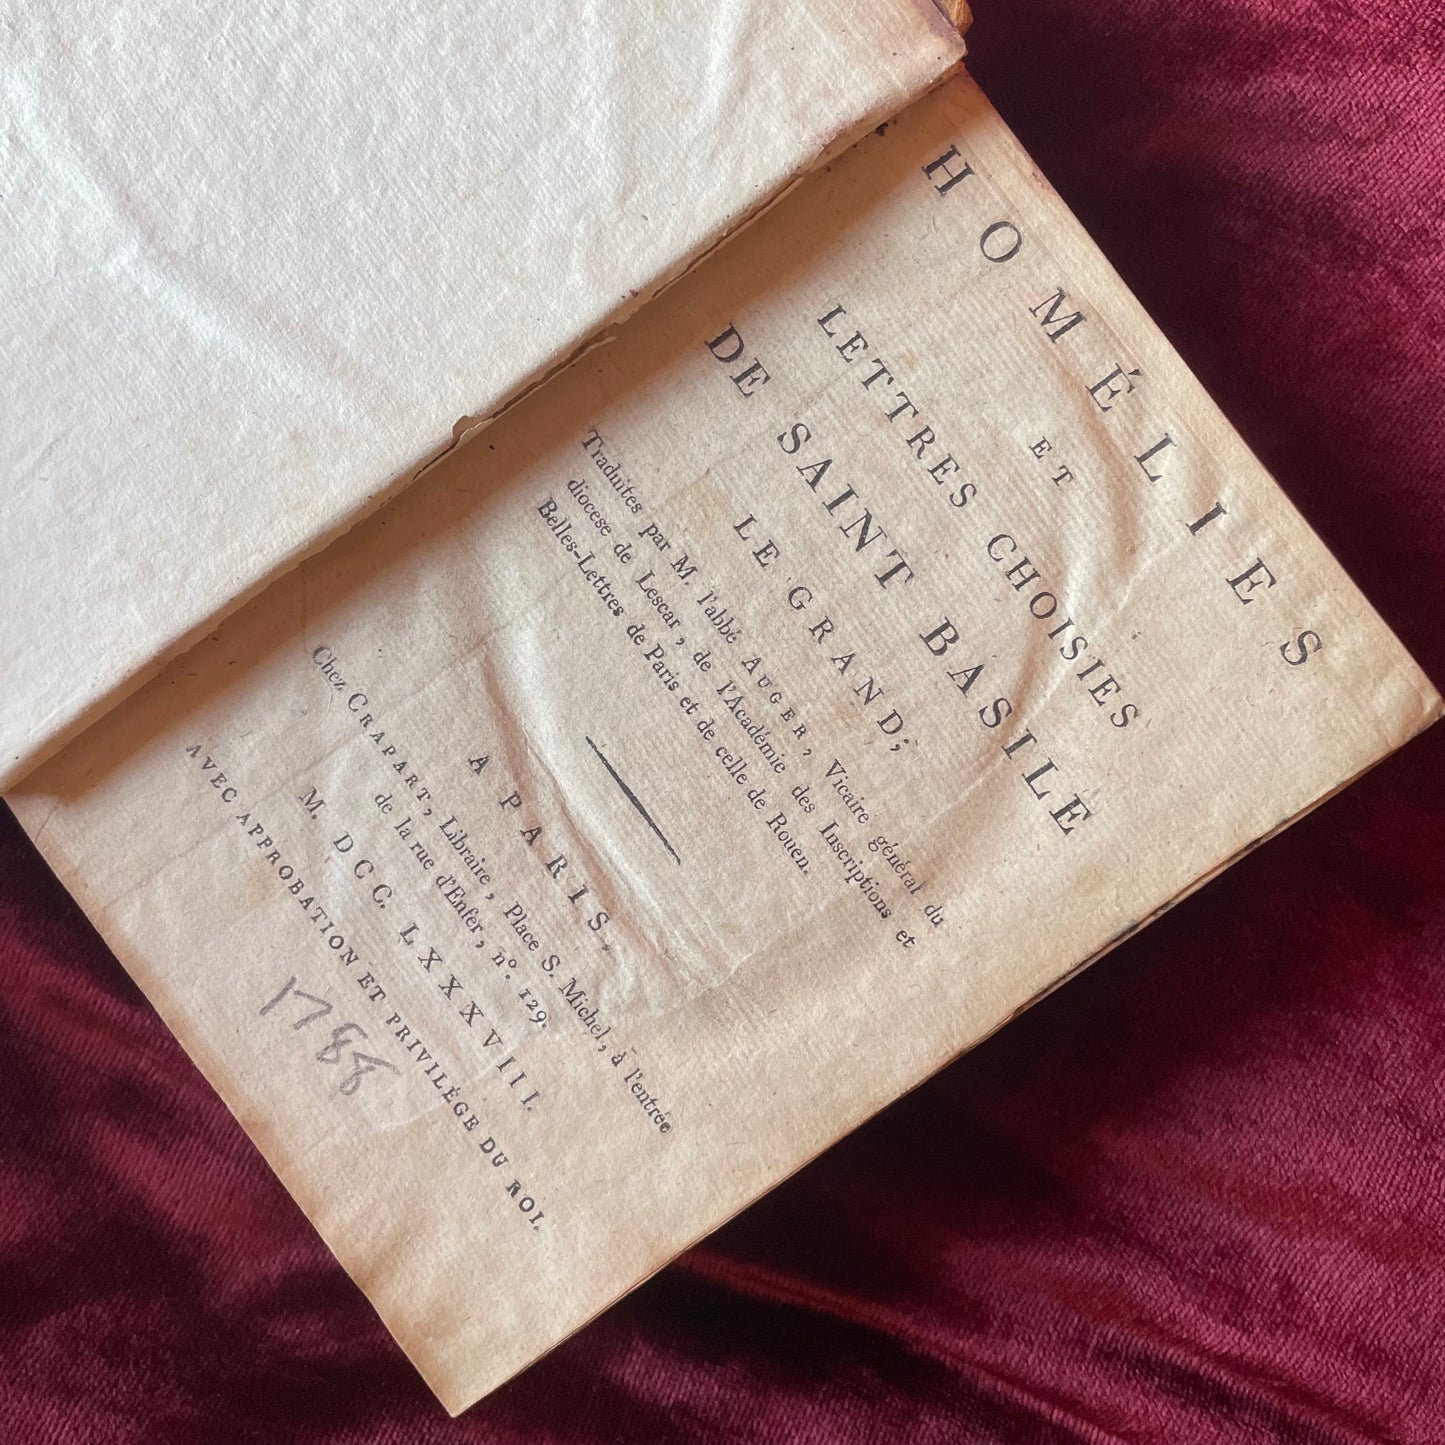 HOMÉLIES
ET
LETTRES CHOISIES
DE SAINT BASILE
LE GRAND;
Traduites par M. l'abbé AUGER, Vicaire général du
diocese de Lescar, de l'Académie des Inscriptions et
Belles-Lettres de Paris et de celle de Rouen.
A PARIS,
Chez CRAPART, Libraire, Place S. Michel, à l'entrée
de la rue d'Enfer, n°. 129.
M. DCC. LXXXVIII.
AVEC APPROBATION ET PRIVILÉGE DU ROI.
1788